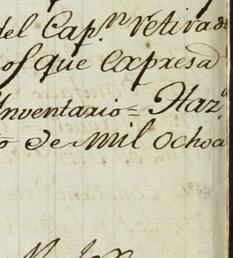 del Cap.n retirad
os que expresa
Inventario = Haz.
o de mil ochoc